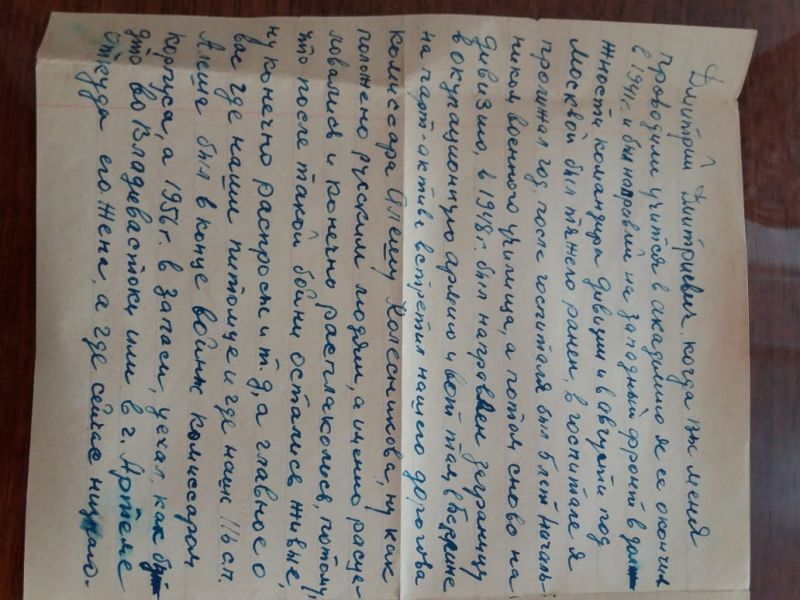 Дмитрий Дмитриевич, когда вы меня
проводили учится в академию я её окончил
в 1941г. и был направлен на западный фронт в долж
жности командира дивизии и в августе под
Москвой был тяжело ранен, в госпитале я
пролежал год, после госпиталя был 5 лет началь-
ником военного училища, а потом снова на
дивизию, в 1948г. был направлен заграницу
в окупационную армию и вот там, в Берлине
на парт-активе встретил нашего дорогова
комиссара Алешу Колесникова, ну как
положено русским людям, а именно расце-
ловались и конечно расплаколись, потому,
что после такой бойни остались живые,
ну конечно распросы и т.д, а главное о
вас где наши питомцы и где наш 116 с.п.
Алеша был в конце войны комиссаром
корпуса, а 1956г. в запасе, уехал, как буд
дто во Владевастоки или в г. Артеме
откуда его жена, а где сейчас низнаю.